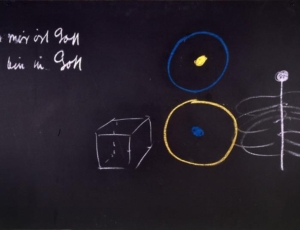 mir ist Gott
bin in Gott